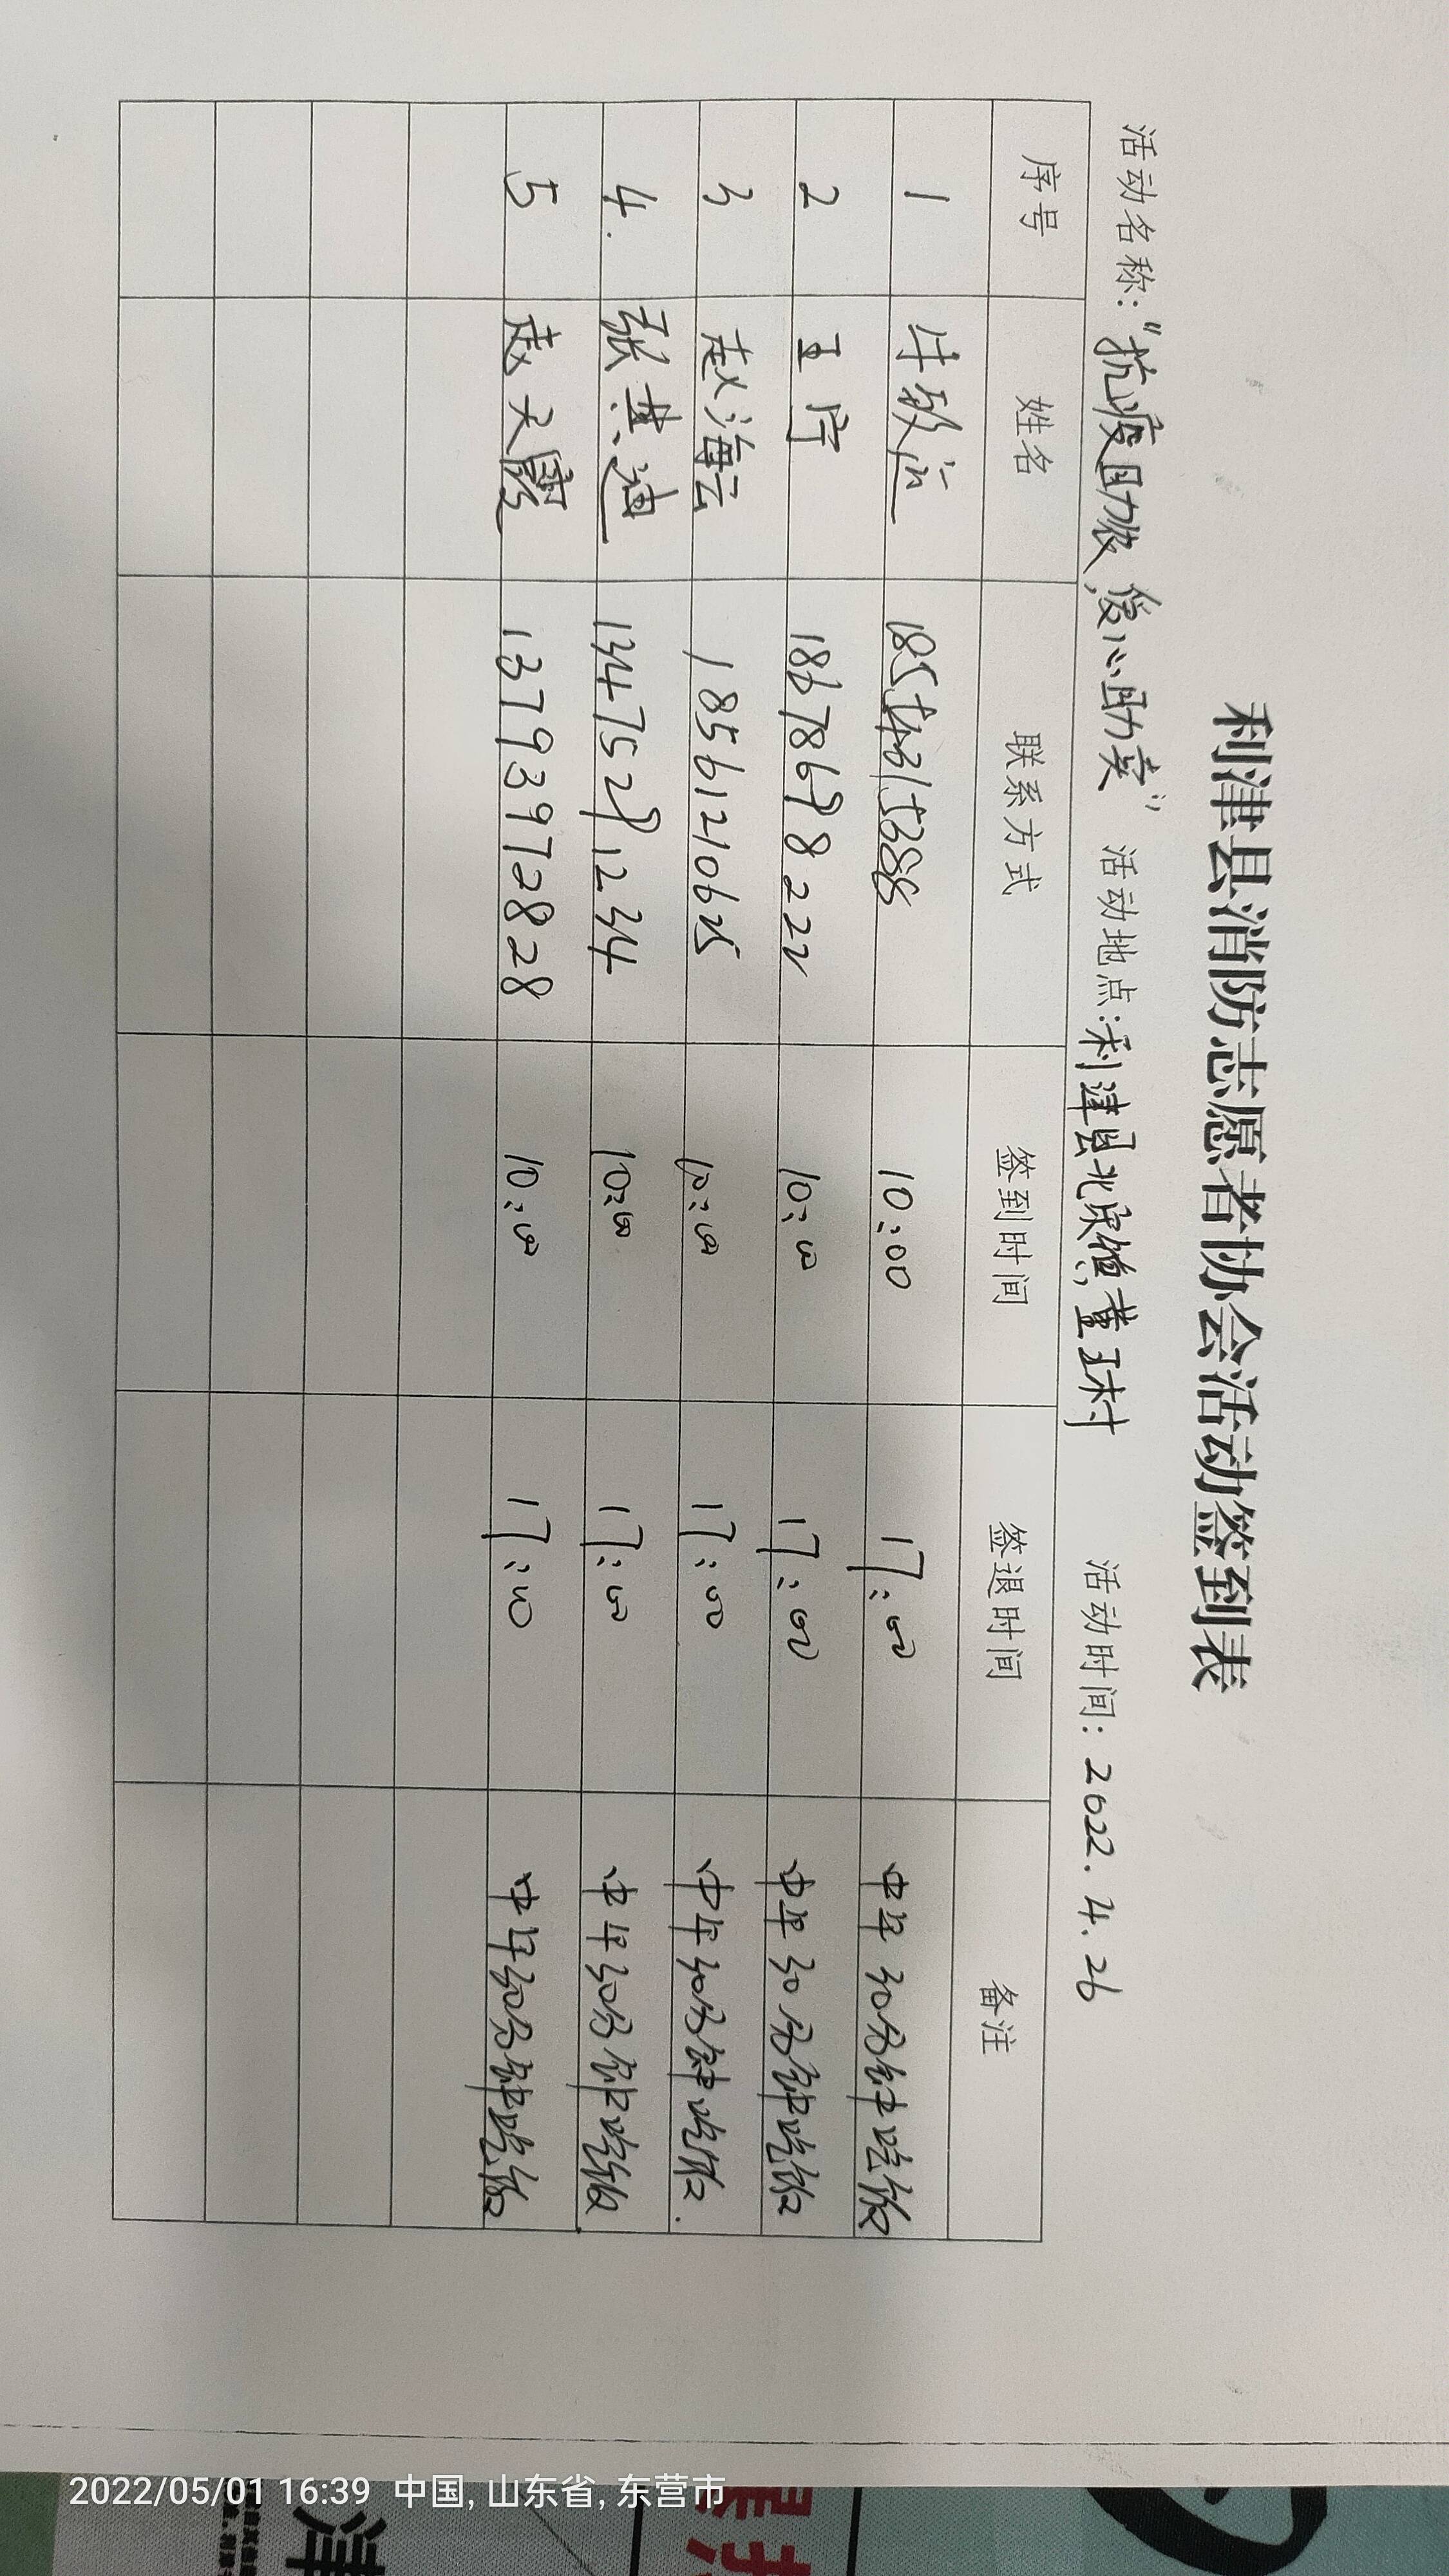 利津县消防志愿者协会活动签到表
活动名称：“抗疫助农，爱心助卖” 活动地点：利津县北宋镇董王村 活动时间：2022.4.26
序号 姓名 联系方式 签到时间 签退时间 备注
1 牛 10:00 17:00 中午30分钟吃饭
2 王 18678698222 10:00 17:00 中午30分钟吃饭
3 赵海云 18561210625 10:00 17:00 中午30分钟吃饭.
4. 张英迪 13475291234 10:00 17:00 中午30分钟吃饭
5 赵天 13793972828 10:00 17:00 中午30分钟吃饭
2022/05/01 16:39 中国, 山东省, 东营市
津